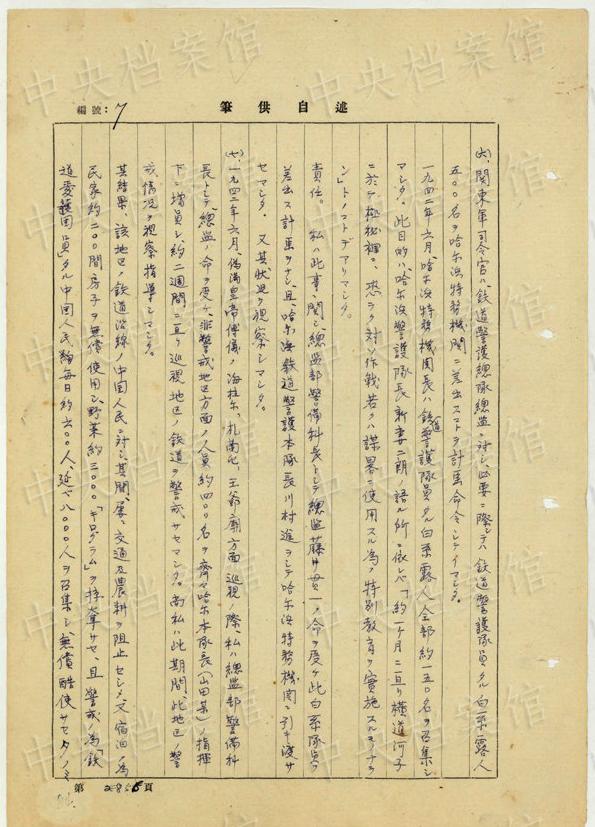 述自供筆
編號：7
(六)、関東軍司令官ハ鉄道警護總隊總監ニ対シ、必要ニ際シテハ鉄道警護隊員タル白系露人
五〇〇名ヲ哈尔浜特務機関ニ差出スコトヲ計画命令シテイマシタ。
一九四二年六月、哈尔浜特務機関長ハ鉄道警護隊員タル白系露人全部約一五〇名ヲ召集シ
マシタ。此目的ハ、哈尔浜警護隊長新妻二朗ノ語ル所ニ依レバ「約一ケ月ニ亘リ横道河子
ニ於テ極秘裡ニ、恐ラク対ソ作戦若クハ謀畧ニ使用スル為ノ特別教育ヲ実施スルモノナラ
ン」トノコトデアリマシタ。
責任。 私ハ此事ニ関シ、總監部警備科長トシテ總監藤井貫一ノ命ヲ受ケ此白系隊員ヲ
差出ス計画ヲナシ、且、哈尔浜鉄道警護本隊長川村進ヲシテ哈尔浜特務機関ニ引キ渡サ
セマシタ。 又其状況ヲ視察シマシタ。
(七)、一九四二年六月、偽満皇帝傅儀ノ海拉尔、札蘭屯、王爺廟方面巡視ノ際、私ハ總監部警備科
長トシテ、總監ノ命ヲ受ケ、非警戒地区方面ノ人員約四〇〇名ヲ齊々哈尔本隊長(山田某)ノ指揮
下ニ増員シ、約二週間ニ亘リ巡視地区ノ鉄道ヲ警戒サセマシタ。尚私ハ此期間、此地区ノ警
戒情况ヲ視察指導シマシタ。
其結果、該地区ノ鉄道沿線ノ中国人民ニ対シ、其間、屢々交通及農耕ヲ阻止セシメ、又宿泊ノ為
民家約二〇〇間房子ヲ無償使用シ、野菜約三〇〇〇「キログラム」ヲ掠奪サセ、且警戒ノ為、「鉄
道愛護団員」タル中国人民毎日約六〇〇人、延ベ八〇〇〇人ヲ召集シ、無償酷使サセタノミ
第 頁
中央档案馆